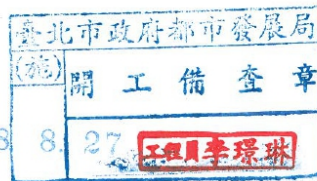 臺北市政府都市發展局
(施) 開工備查章
8 8. 27 工程員李璟琳